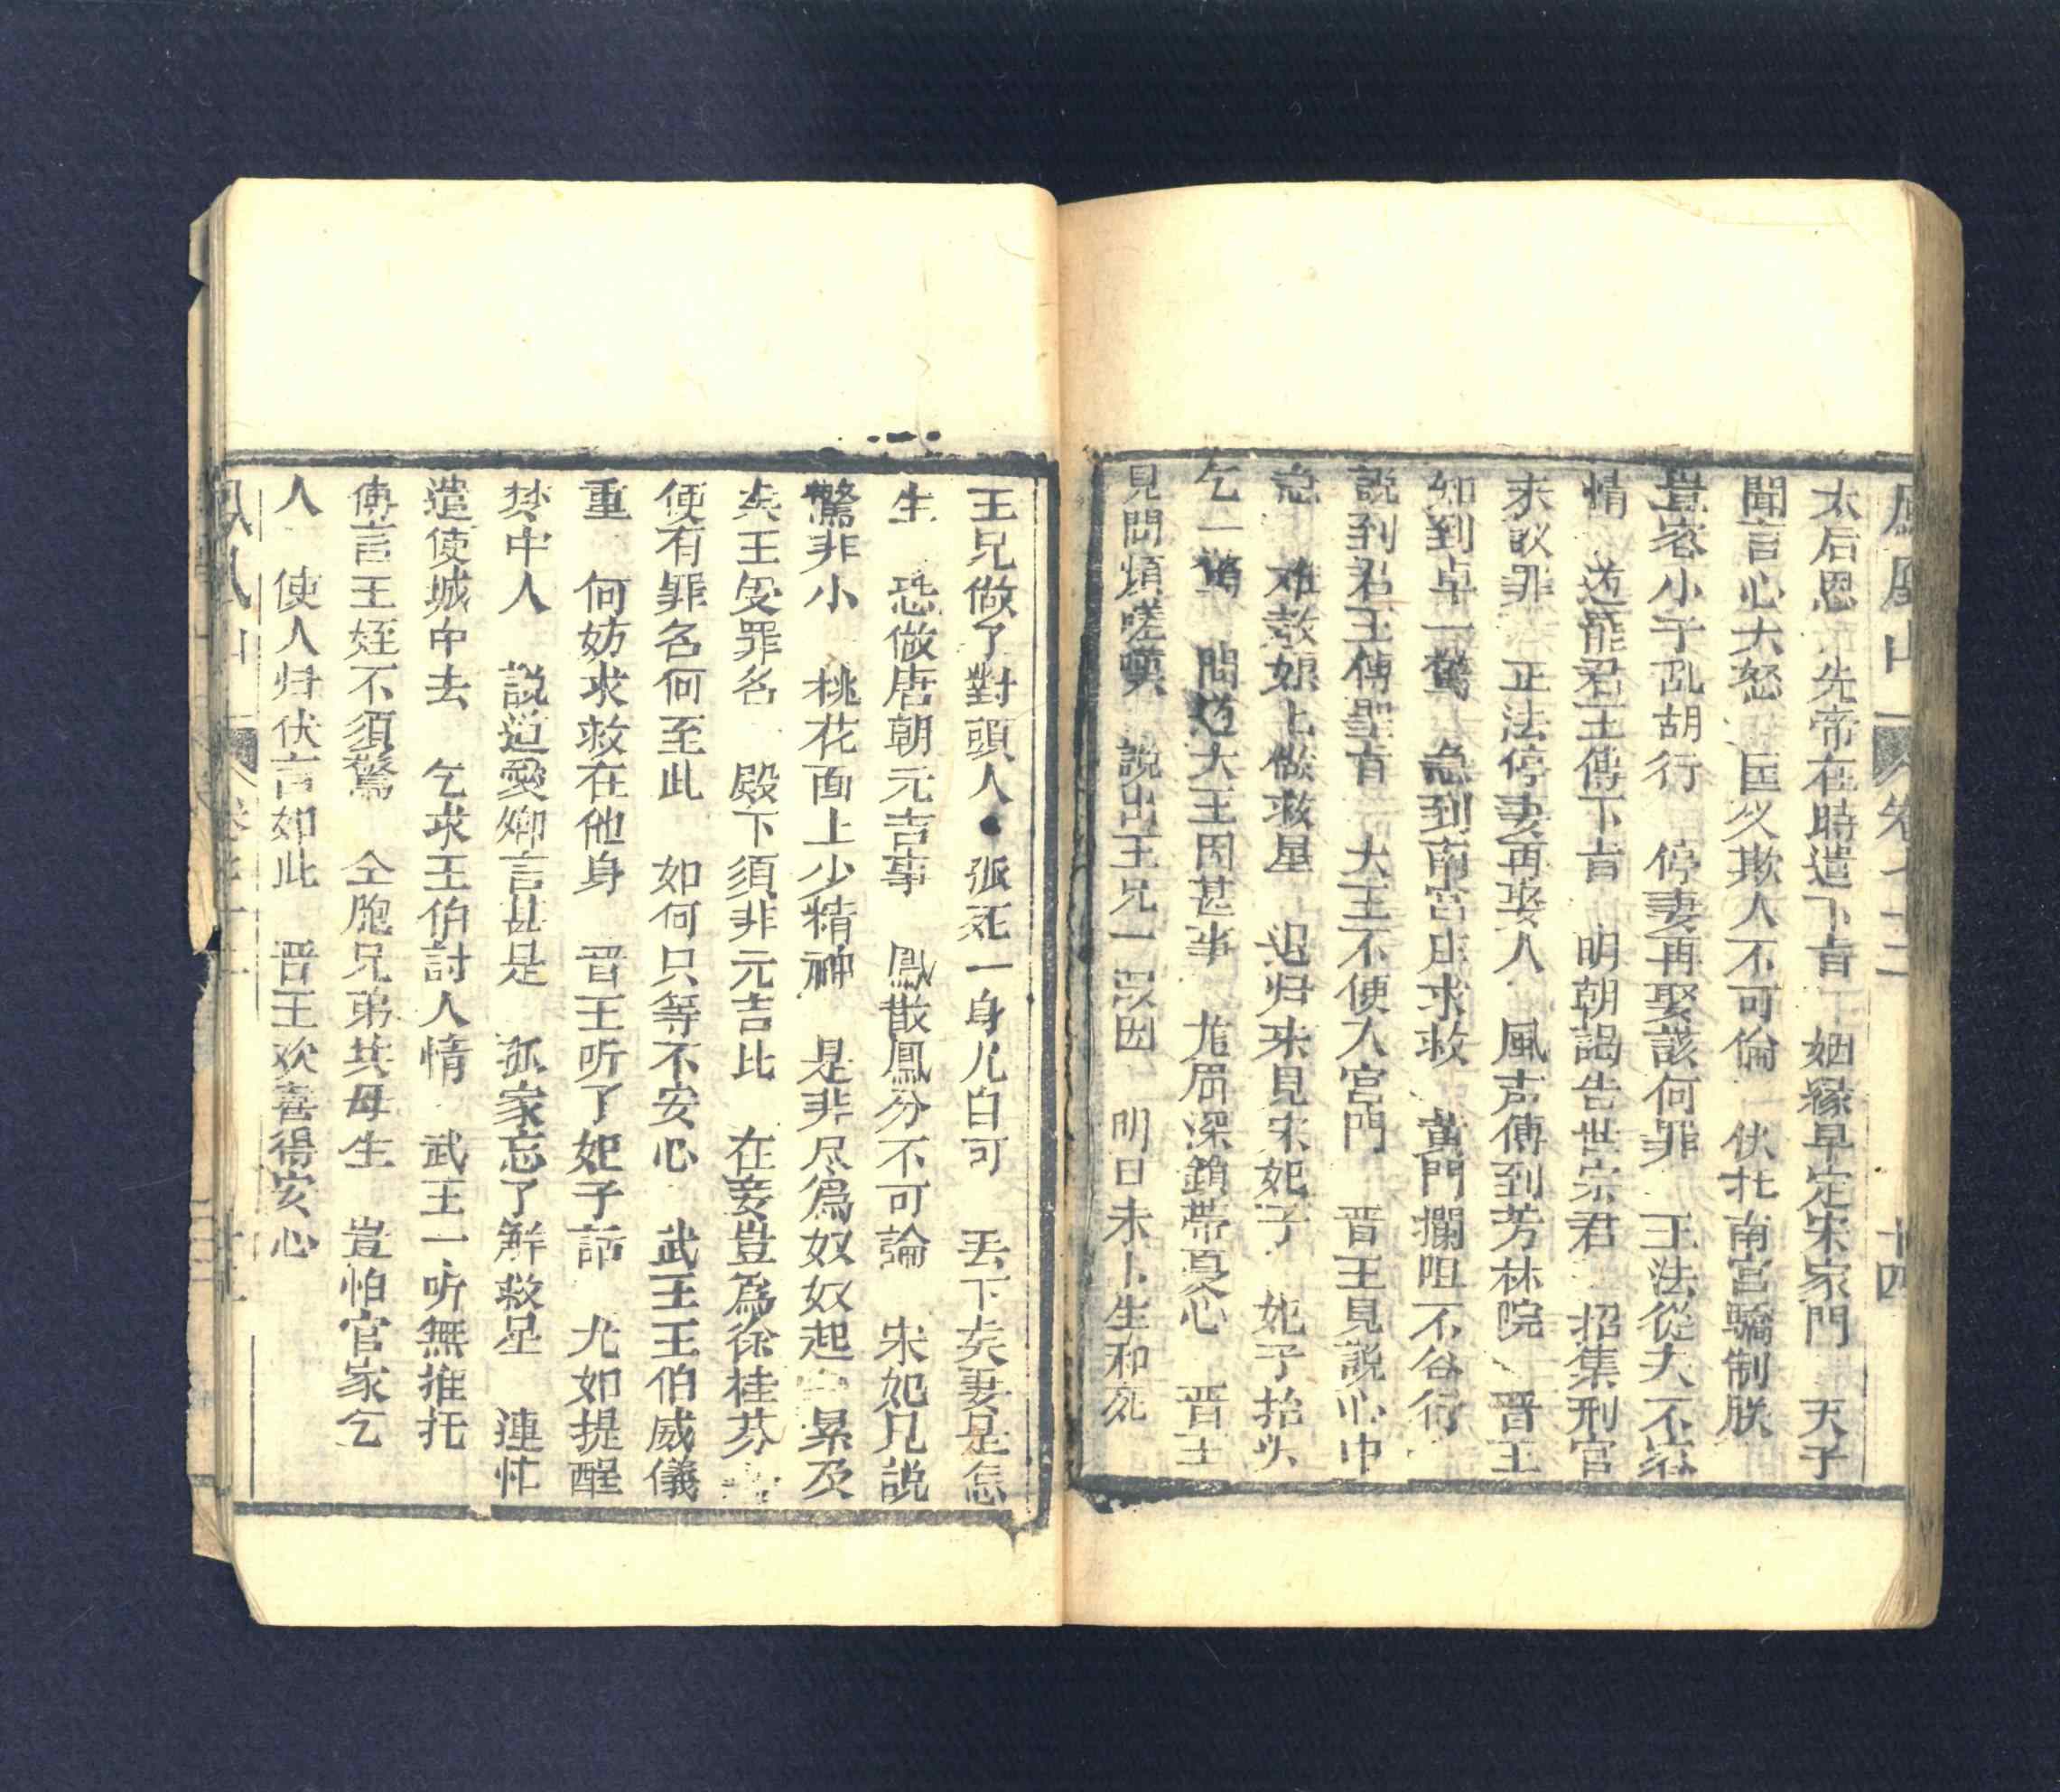 凰山 卷七十二 十四
太后恩 先帝在時遣下旨 姻縁早定宋家門 天子
聞言心大怒 匡义欺人不可倫 伏托南宮驕制朕
豈容小子乱胡行 停妻再娶該何罪 王法從夫不容
情 迯龍君王傳下旨 明朝謁告世宗君 招集刑官
来议罪 正法停妻再娶人 風声傳到芳林院 晋王
知到卓一驚 急到南宮庄求救 黄門攔阻不容行
說到君王傳聖旨 大王不便入宮門 晋王見說心中
急 难教娘上做救星 迯归来見宋妃子 妃子抬头
乞一驚 問道大王因甚事 尨眉深鎖帶憂心 晋王
見問煩嗟嘆 說出王兄一叚因 明日未卜生和死
王兄做了對頭人 孤死一身儿白可 丟下夫妻是怎
生 恐做唐朝元吉事 鳳散鳳分不可論 宋妃見說
驚非小 桃花面上少精神 是非尽爲奴奴起 累及
夫王受罪名 殿下須非元吉比 在妾豈爲徐桂芬
便有罪名何至此 如何只等不安心 武王王伯威儀
重 何妨求救在他身 晋王听了妃子話 尤如提醒
梦中人 說道愛卿言甚是 孤家忘了觧救星 連忙
遣使城中去 乞求王伯討人情 武王一听無推托
傳言王姪不須驚 仝胞兄弟共母生 豈怕官家乞
人 使人归伏言如此 晋王欢喜得安心
山